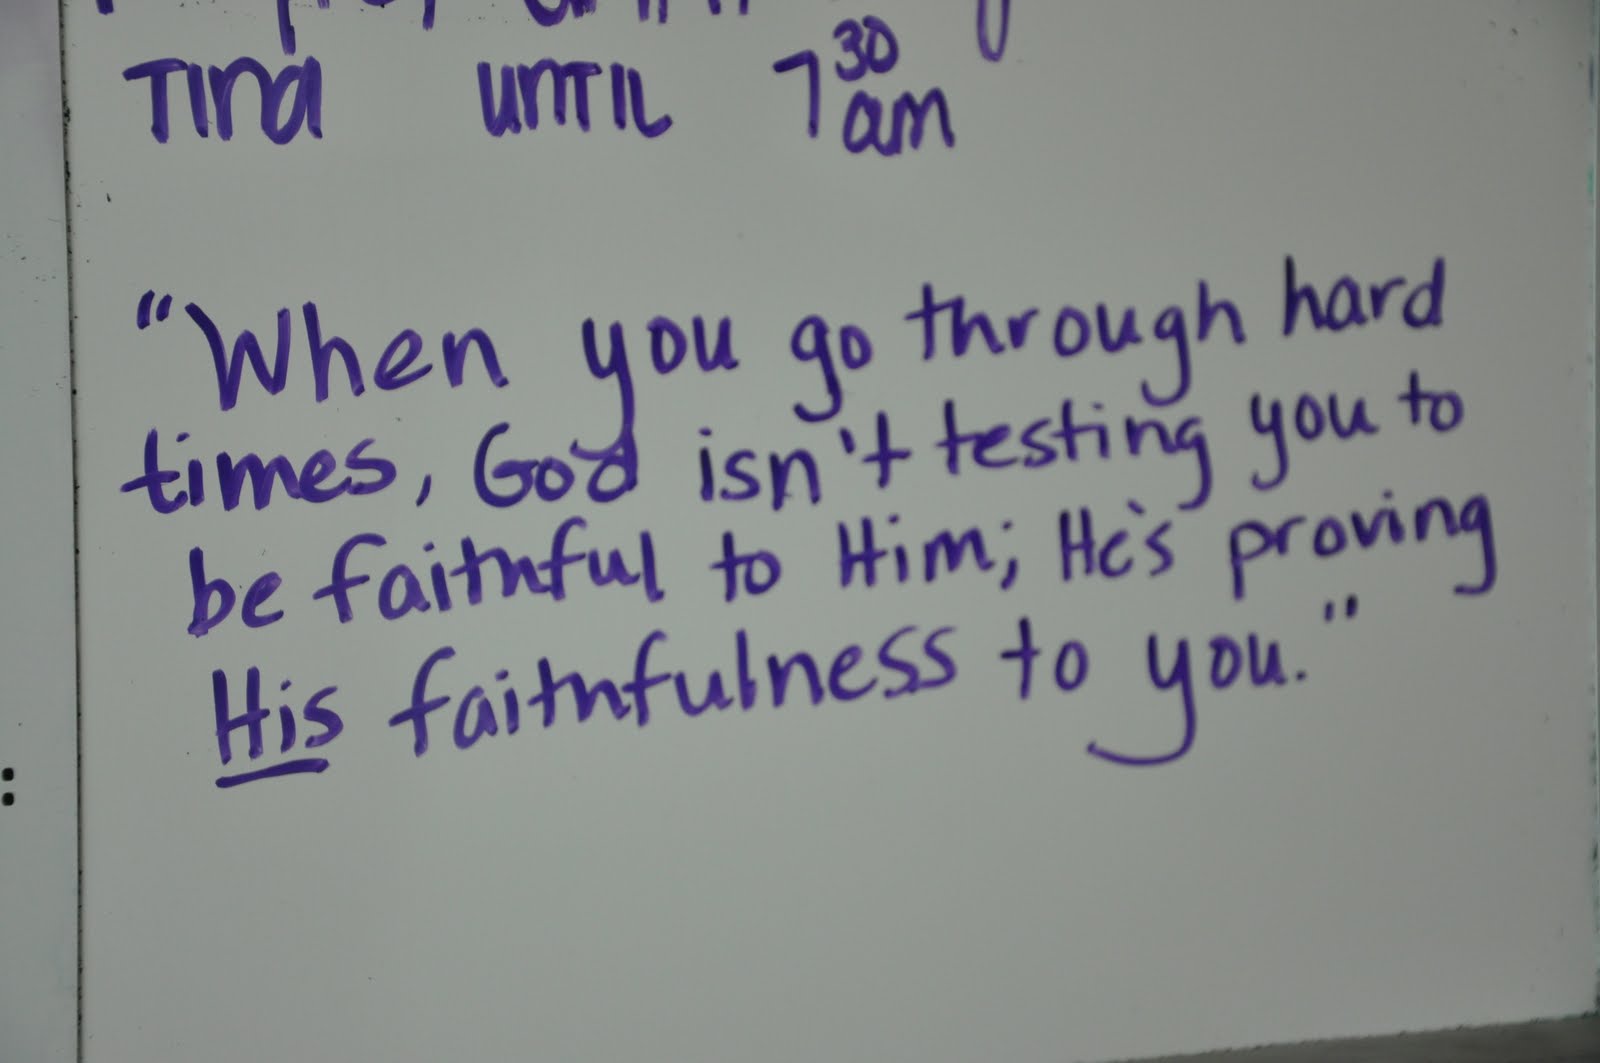 Tina until 7 30 am
"When you go through hard
times, God isn't testing you to
be faithful to Him; He's proving
His faithfulness to you."